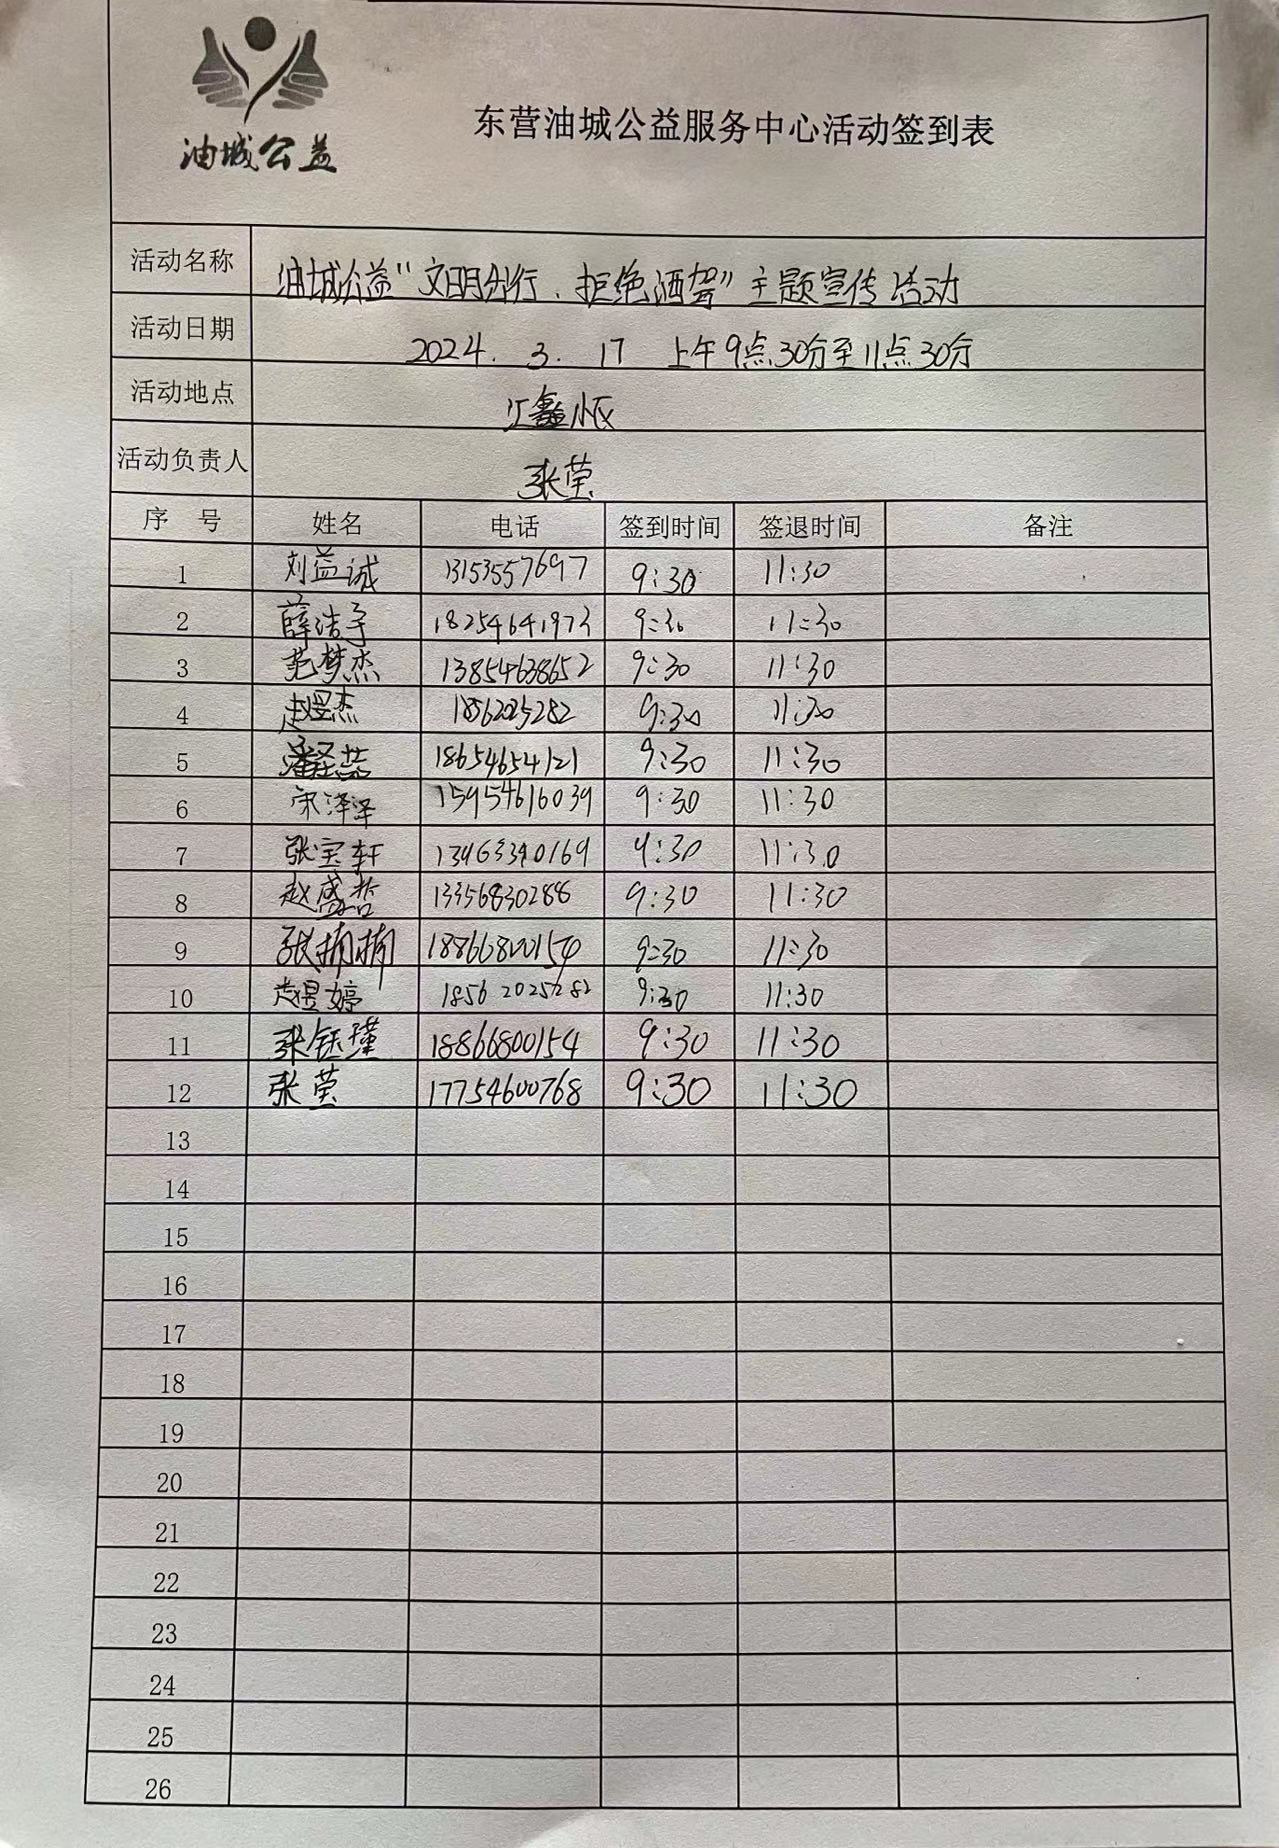 油城公益
东营油城公益服务中心活动签到表
活动名称 油城公益“文明出行、拒绝酒驾”主题宣传活动
活动日期 2024.3.17 上午9点30分至11点30分
活动地点 汇鑫小区
活动负责人 张莹
序号 姓名 电话 签到时间 签退时间 备注
1 刘益诚 13153557697 9:30 11:30
2 薛洁予 18254641973 9:30 11:30
3 范梦杰 13854638652 9:30 11:30
4 赵煜杰 1856225282 9:30 11:30
5 潘圣蕊 18654654121 9:30 11:30
6 宋泽泽 15954616039 9:30 11:30
7 张宝轩 13463340169 9:30 11:30
8 赵盛哲 13356830288 9:30 11:30
9 张楠楠 18866800154 9:30 11:30
10 赵煜婷 9:30 11:30
11 张钰瑾 18866800154 9:30 11:30
12 张莹 17754600768 9:30 11:30
13
14
15
16
17
18
19
20
21
22
23
24
25
26